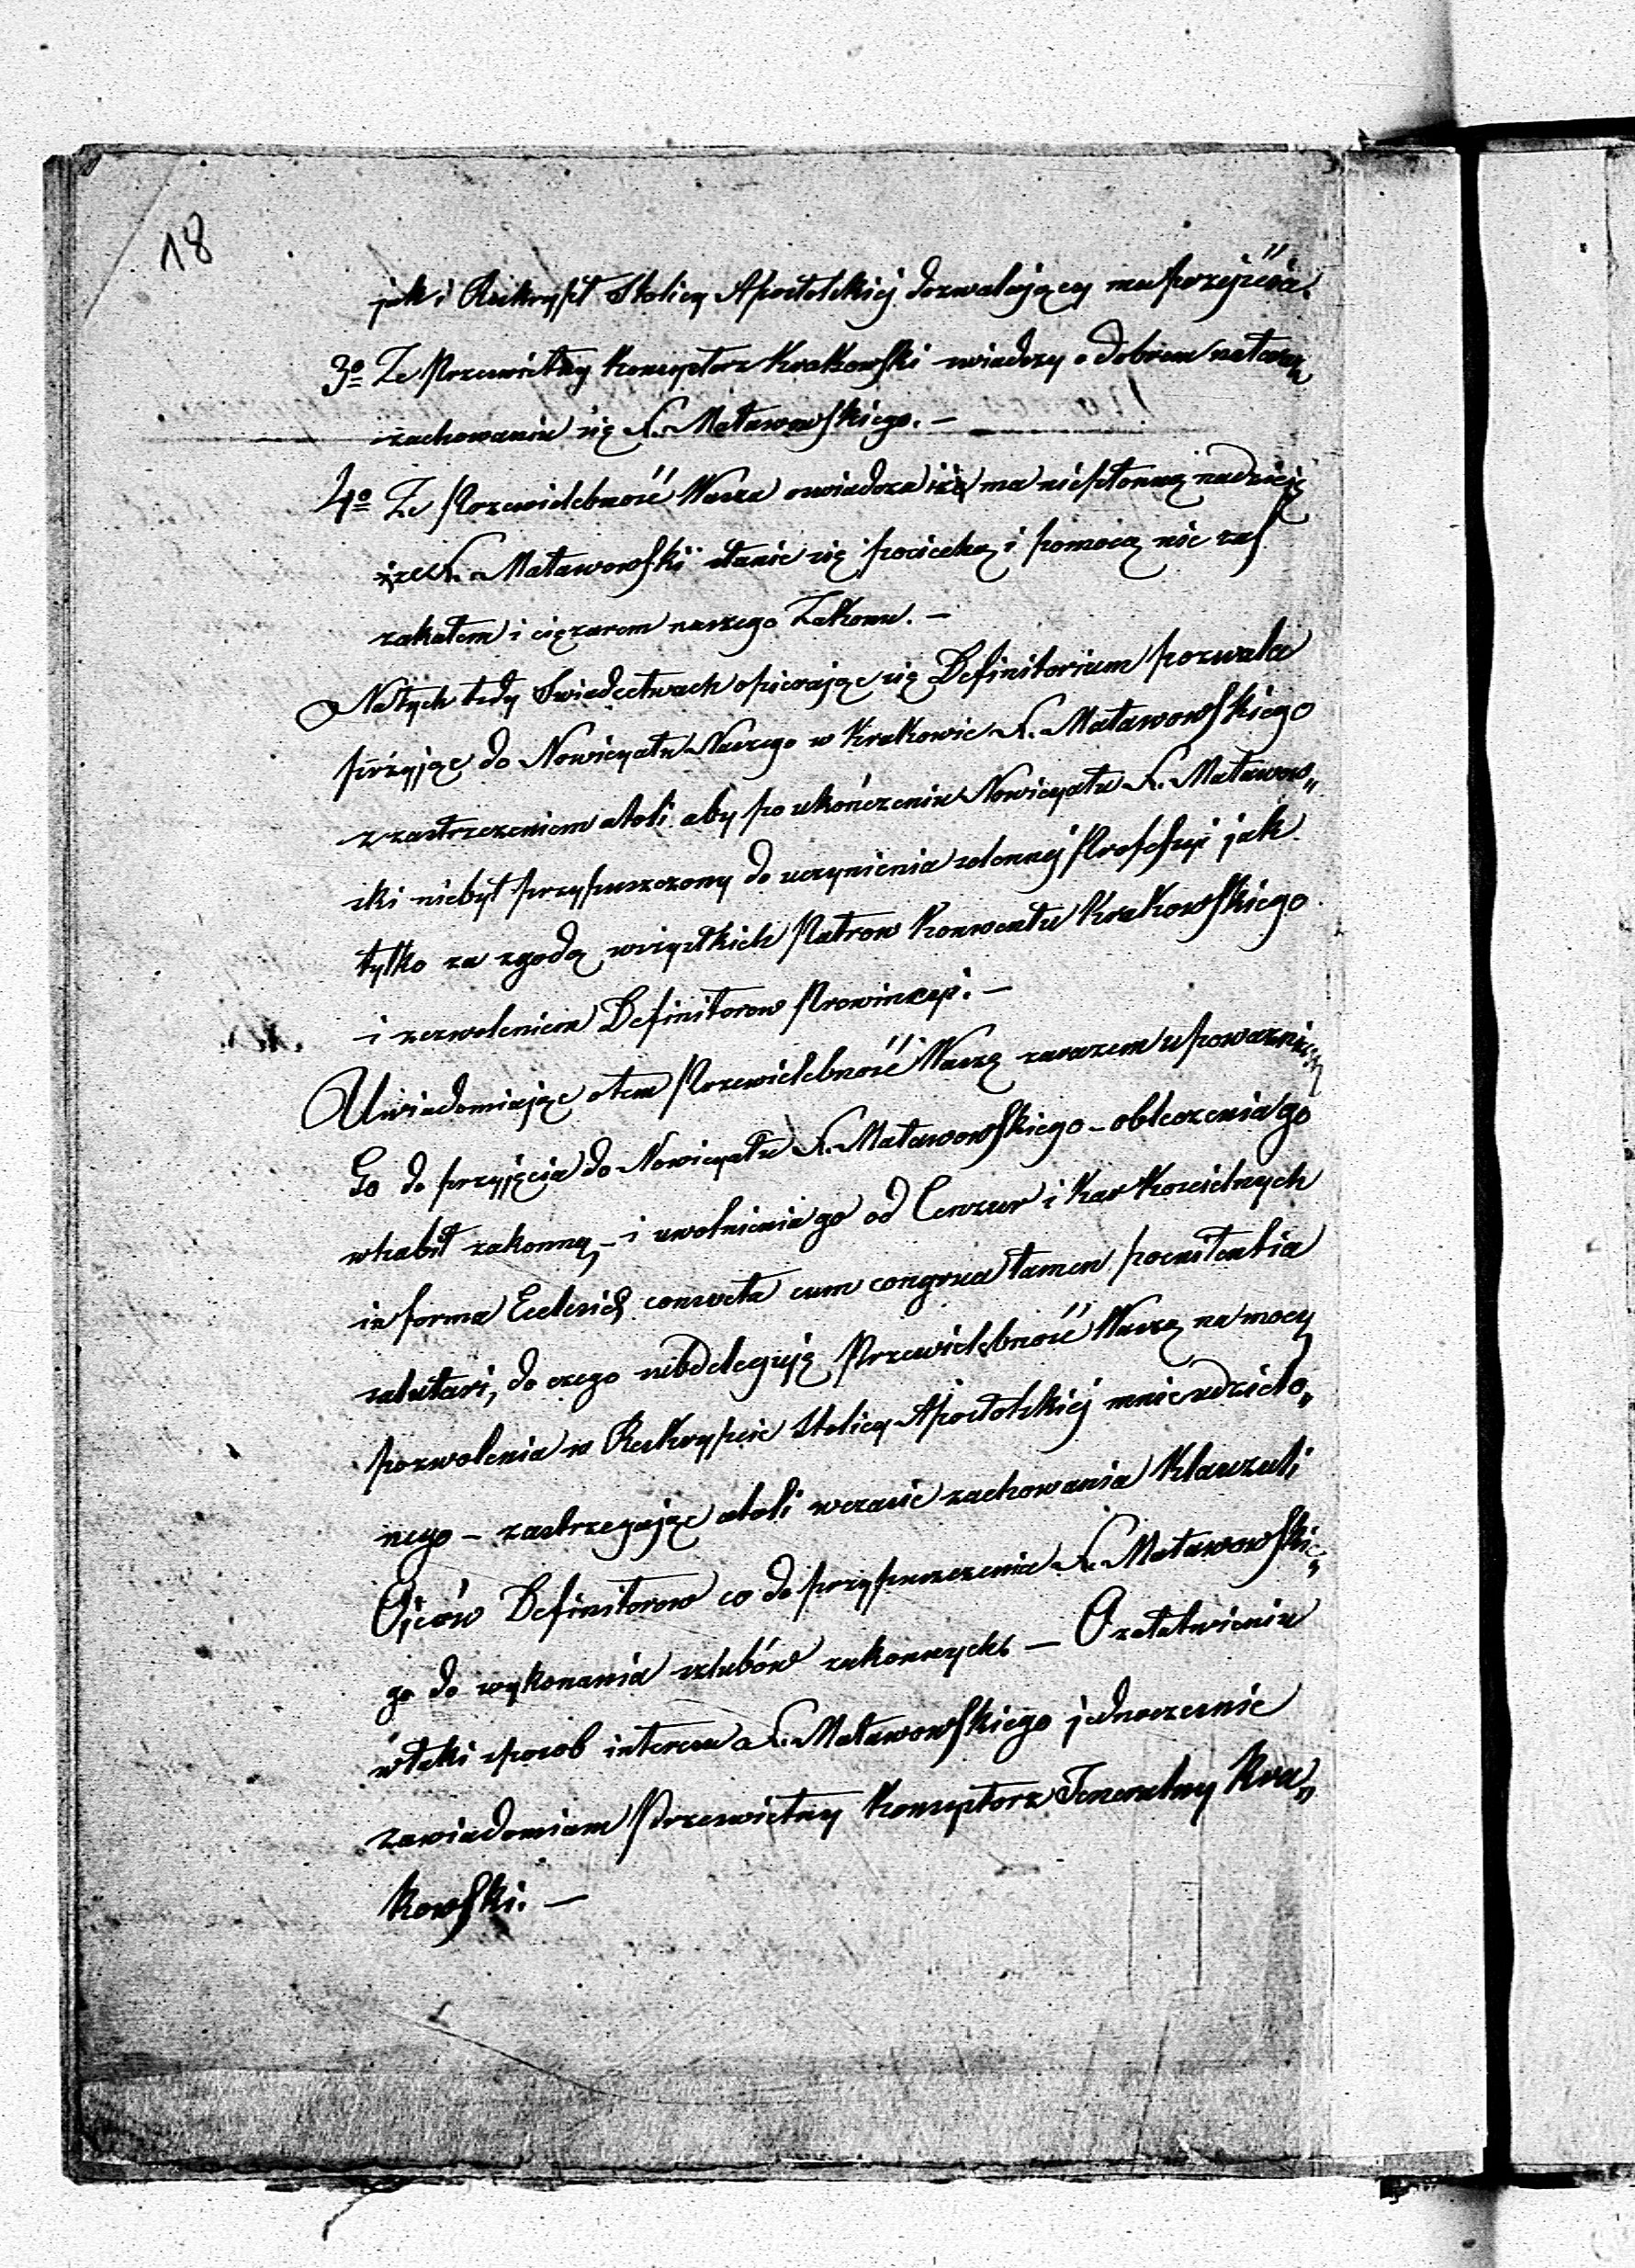 18
jak i Reskrypt Stolicy Apostolskiej dozwalający mu przejścia.
3º Ze Przeswietny Konsystorz Krakowski swiadczy o dobrem natéraz
zachowaniu się X. Matawowskiego. –
4º Ze Przewielebność Wasza oswiadcza iż ma niepłonną nadzieję
że X. Matawowski stanie się pociechą i pomocą nie zaś
zakałem i ciężarem naszego Zakonu. –
Na tych tedy Swiadectwach opierając się Definitorium pozwala
przyjąc do Nowicyatu Naszego w Krakowie X. Matawowskiego
z zastrzezeniem atoli aby po ukończeniu Nowicyatu X. Matawow„
ski niebył przypuszczony do uczynienia solennej Professyi jak
tylko za zgodą wszystkich Patrow Konwentu Krakowskiego
i zezwoleniem Definitorow Prowincyi. –
Uwiadomiając o tem Przewielebność Waszą zarazem upoważniam
Go do przyjęcia do Nowicyatu X. Matawowskiego – obleczenia go
w habit zakonny – i uwolnienia go od Cenzur i Kar Koscielnych
in forma Ecclesiæ consueta cum congrua tamen poenitentia
salutari, do czego subdeleguję Przewielebność Waszą na mocy
pozwolenia w Reskrypcie Stolicy Apostolskiej mnie udzielo„
nego – zastrzegając atoli wczasie zachowania Klauzuli
Ojców Definitorow co do przypuszczenia X. Matawowskie„
go do wykonania szlubów zakonnych. – O załatwieniu
wtaki sposob interesu X. Matawowskiego jednoczesnie
zawiadomiam Przeswietny Konsystorz Jeneralny Kra„
kowski. –